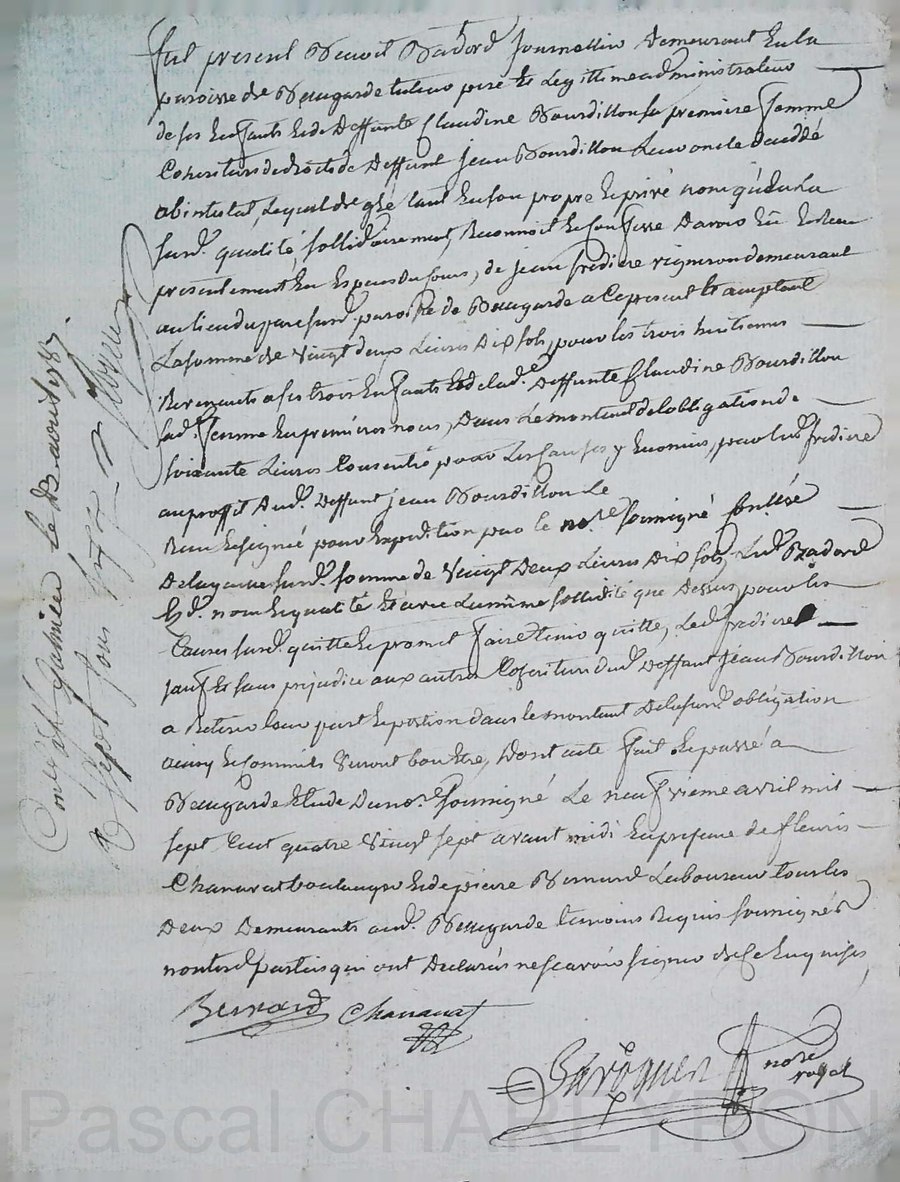 fut present Benoit Badord Journallier Demeurant en la
paroisse de Beaugarde tuteur pere et Legittime administrateur
de ses Enfants et de Deffunte Claudine Bourdillon sa premiere femme
Coheritiers de droits de Deffunt Jean Bourdillon Leur oncle Decedé
abintestat, Lequel de gré tant En son propre et privé nom qu'En La
susd. qualité sollidairement, Reconnoit et Confesse Davoir Eu et Receu
presentement En Especes du Cours, de Jean fridiere vigneron demeurant
au lieu du parc susd. paroisse de Beaugarde a Ce present et acceptant
La somme de vingt deux Livres Dix sols, pour les trois huitiemes
Revenants a ses trois Enfants et de lad. Deffunte Claudine Bourdillon
sad. femme En premieres noces, Dans Le montant de lobligation de
soixante Livres Consentie pour Les Causes y Enoncés, par led. fridiere
au proffit dud. Deffunt Jean Bourdillon Le
Reçu et signée pour Expedition par le nore. soussigné
De laquelle susd. somme de Vingt Deux Livres Dix sols, Led. Badord
Esd. nom et qualité et avec La même sollidité que Dessus, pour les
Causes susd. quitte et promet faire tenir quitte, Led. fridiere
sauf et sans prejudice aux autres Coheritiers dud. Deffunt Jean Bourdillon
a Retirer leur part et portion dans le montant De la susd. obligation
ainsy et Comme ils verront bon Etre, Dont acte fait et passé a
Beaugarde Etude Du nore. soussigné Le neufvieme avril mil
sept Cent quatre Vingt sept avant midi En presence de fleuris
Chanavat boulanger et de pierre Bernard Laboureur tous les
Deux Demeurants aud. Beaugarde temoins Requis soussignés
non lesd. parties qui ont Declarés ne scavoir signer de Ce Enquises
Bernard Chanavat
nore royal
Controllé le 13 avril 1787.
Reçu sous
Pascal CHAREYRON